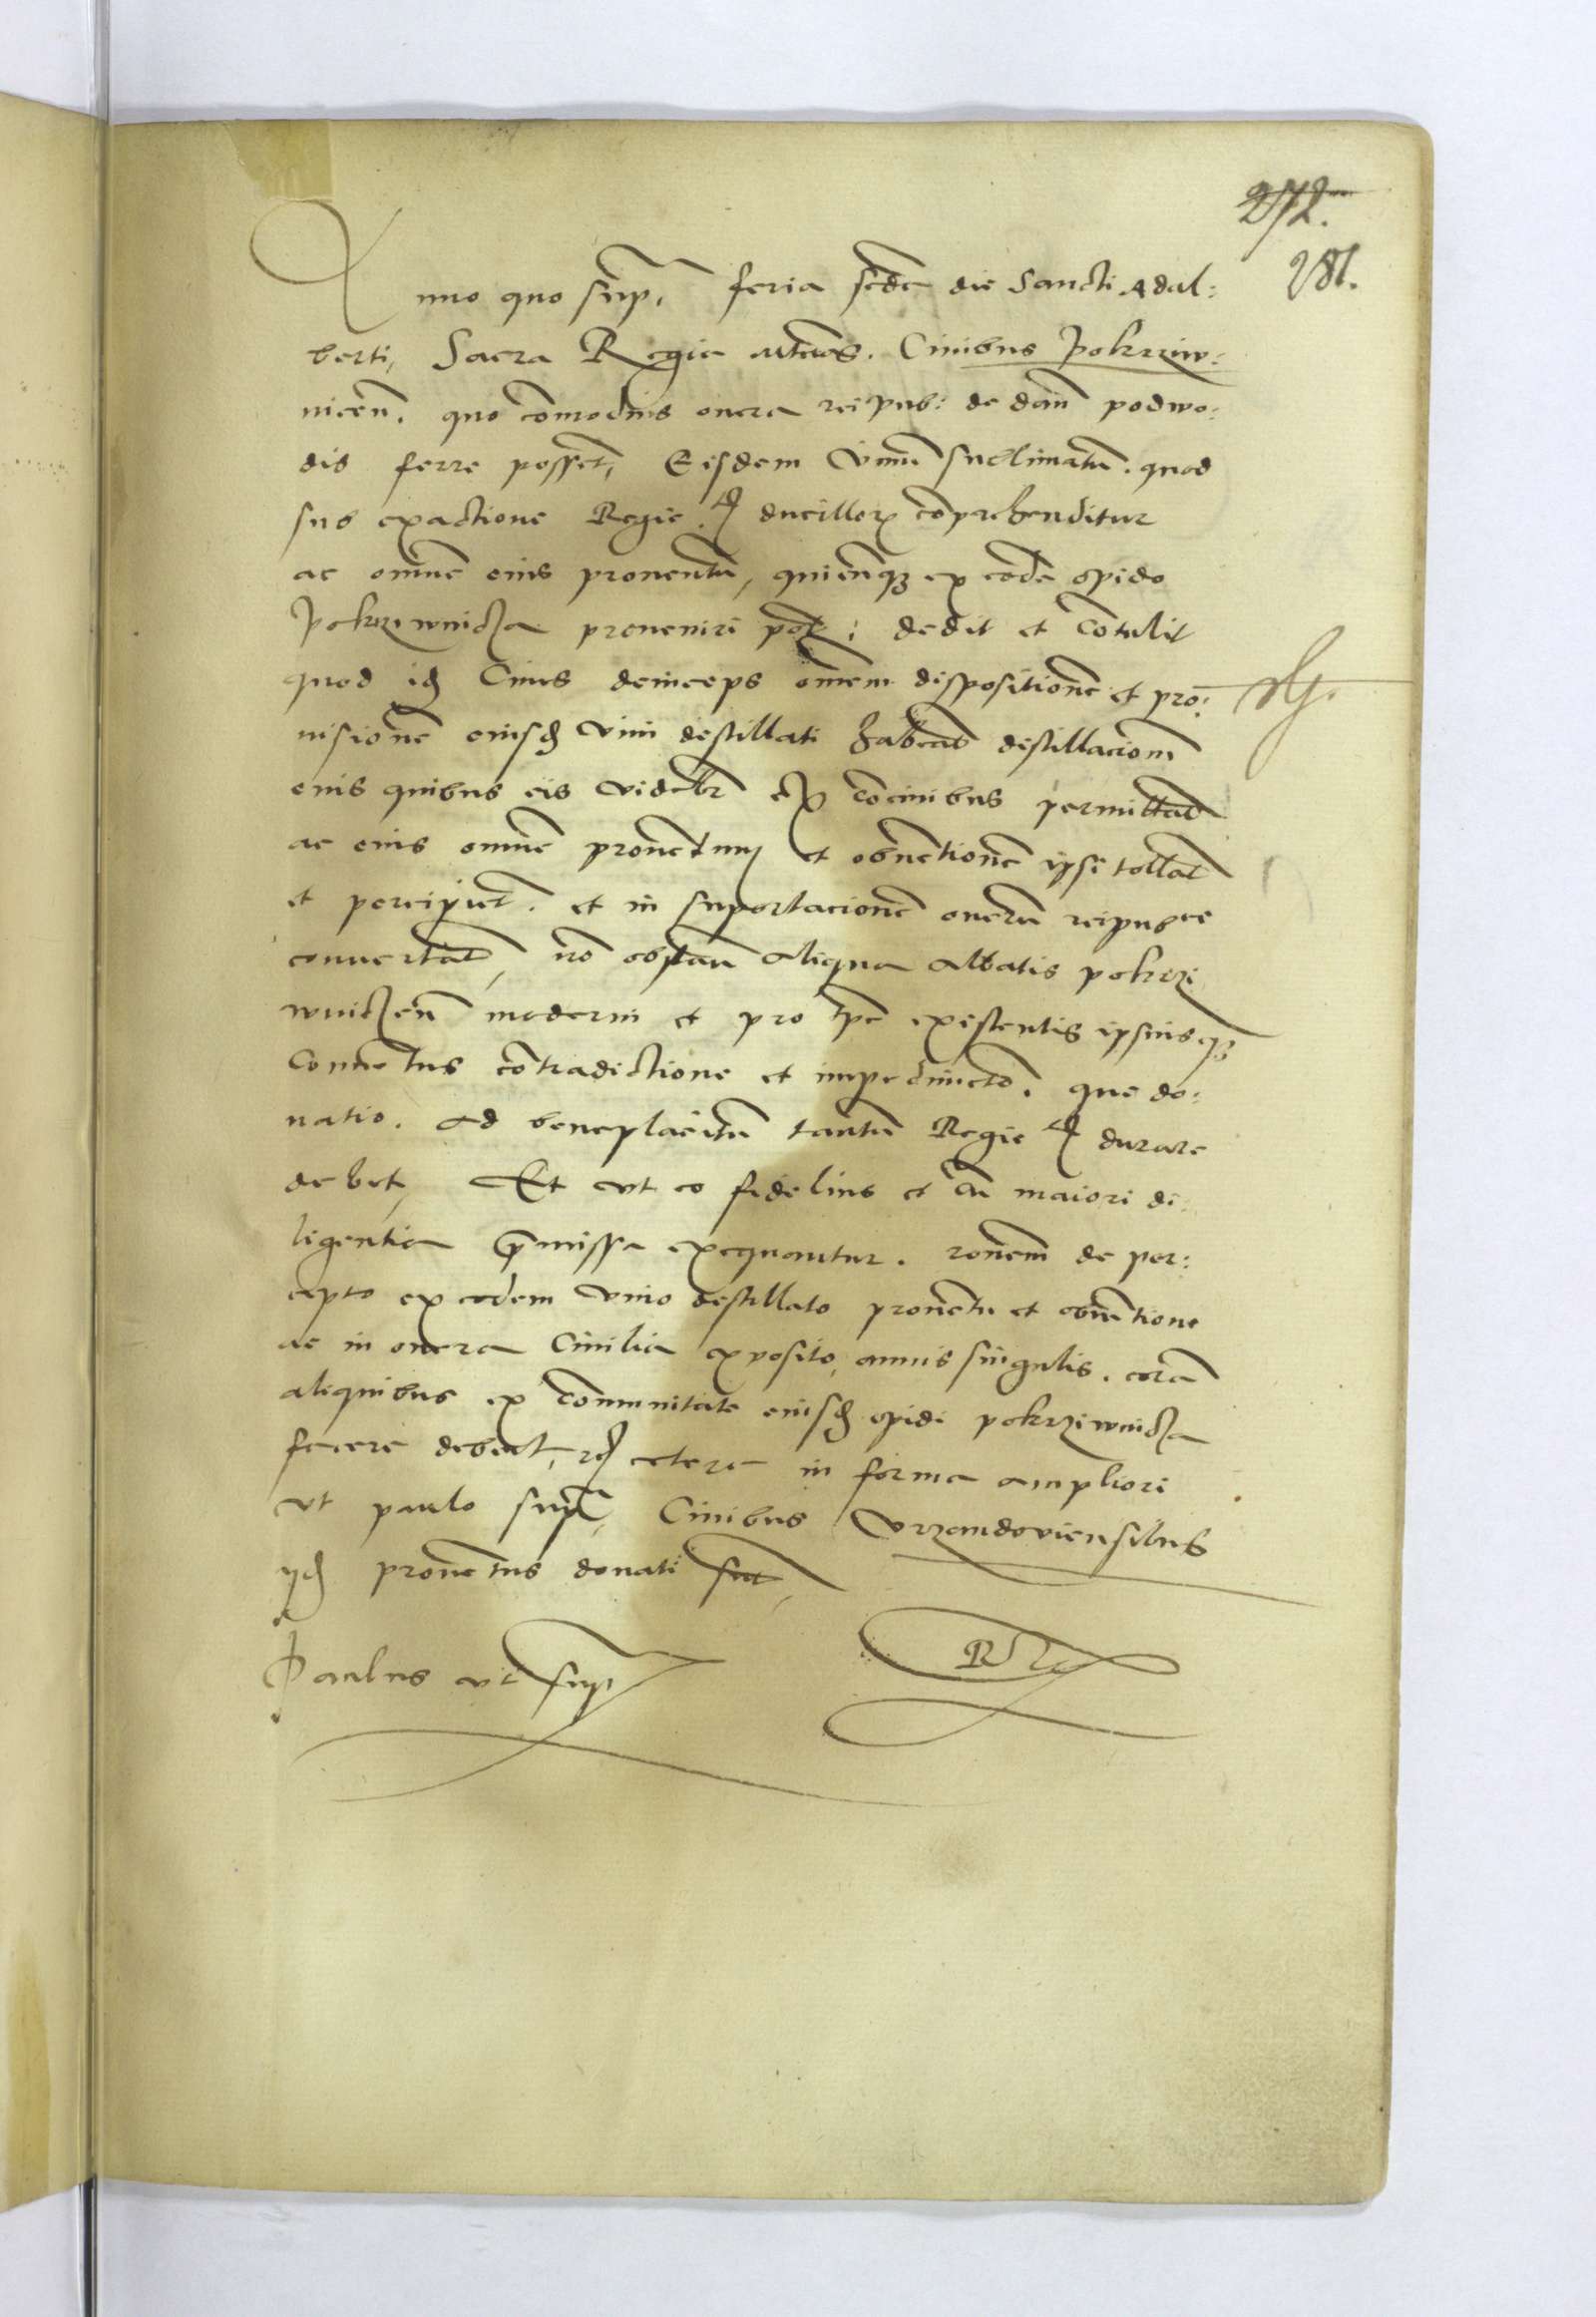 272.
281.
Anno quo sup. feria secda die Sancti Adal:
berti, Sacra Regia Mtas. Ciuibus Pokrziw:
nicen. quo comodius onera reipub: de dan podwo:
dis ferre possent, Eisdem vinum sublimatum. quod
sub exactione Regie M ducillorum comprehenditur
ac omne eius prouentum, quicunq ex eode opido
Pokrziwnicza prouenire pot: dedit et contulit
quod id Ciues deinceps omnem dispositione et pro:
uisionem eiusd vini destillati habeat destillacionem
eius quibus eis videbr ex conciuibus permittat
ac eius omne prouentum et obuentione ipsi tollat
et percipiet. et in suportacione onerum reipubce
conuertat, no obstan aliqua Abbatis pokrzi
wniczen moderni et pro tpe existentis ipsiusq
Conuentus contradictione et impedimeto. que do:
natio. ad beneplacitum tantum Regie M durare
debet, Et vt eo fidelius et cum maiori di:
ligentia premissa exequantur. ronem de per:
cepto ex eodem vino destillato prouentu et obuentione
ac in onera Ciuilia exposito, annis singulis. coram
aliquibus ex communitate eiusd opidi pokrziwnicza
facere debent, cetera in forma ampliori
vt paulo supra, Ciuibus Vrzandouiensibus
ijd prouentus donati sut,
Paulus vt sup
Rta